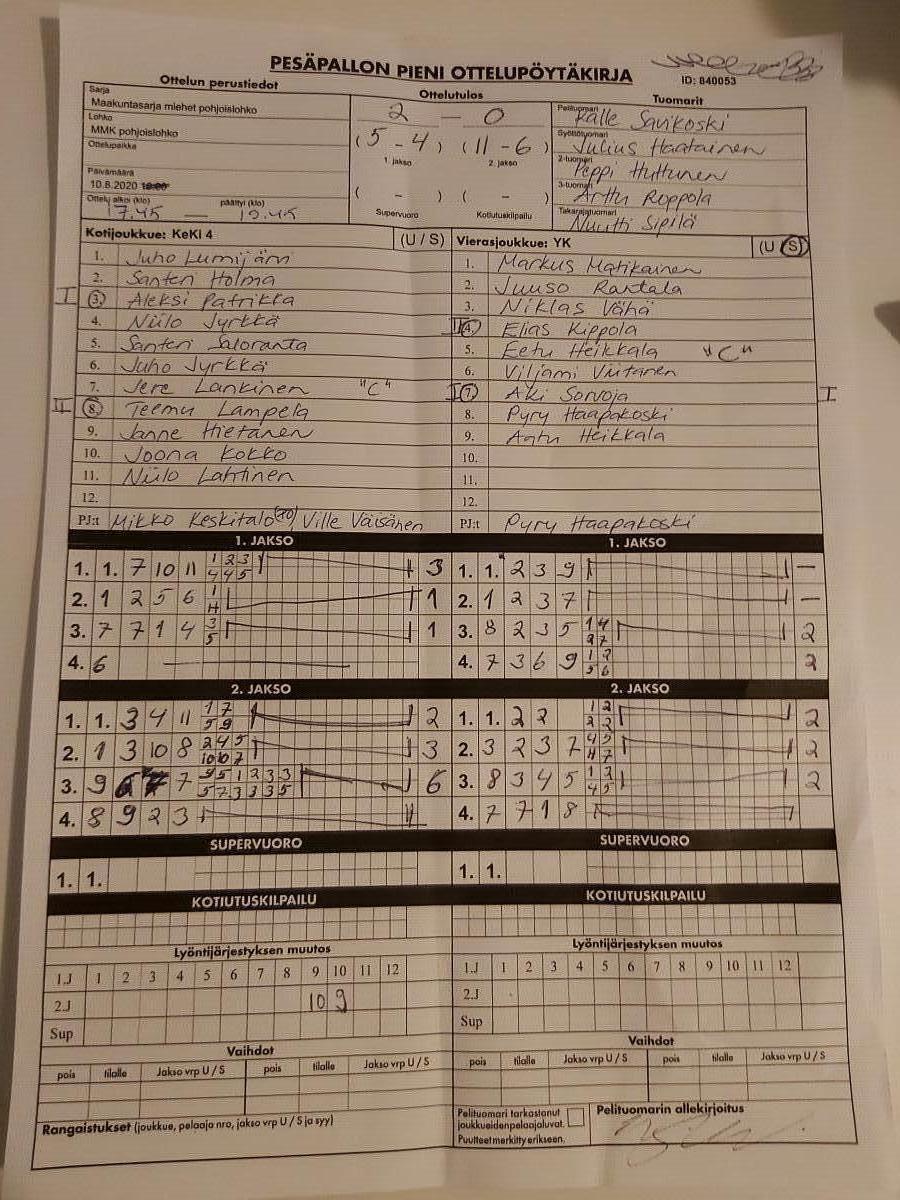 PESÄPALLON PIENI OTTELUPÖYTÄKIRJA
ID: 840053
Ottelun perustiedot
Ottelutulos
Tuomarit
Sarja
Maakuntasarja miehet pohjoislohko
Lohko
MMK pohjoislohko
Ottelupaikka
Päivämäärä
10.8.2020
Ottelu alkoi (klo) päättyi (klo)
17.45 — 19.45
2 — 0
(5 - 4) (11 - 6)
1. jakso 2. jakso
( - ) ( - )
Supervuoro Kotiutuskilpailu
Pelituomari
Kalle Sarikoski
Syöttötuomari
Julius Haatainen
2-tuomari
Peppi Huttunen
3-tuomari
Arttu Roppola
Takarajatuomari
Nuutti Sipilä
Kotijoukkue: KeKi 4 (U / S)
1. Juho Lumijärvi
2. Santeri Holma
I 3. Aleksi Patrikka
4. Niilo Jyrkkä
5. Santeri Saloranta
6. Juho Jyrkkä
7. Jere Lankinen "C"
II 8. Teemu Lampela
9. Janne Hietanen
10. Joona Kokko
11. Niilo Lahtinen
12.
PJ:t Mikko Keskitalo Ville Väisänen
Vierasjoukkue: YK (U / S)
1. Markus Matikainen
2. Juuso Rantala
3. Niklas Vähä
II 4. Elias Kippola
5. Eetu Heikkala "C"
6. Viljami Viitanen
I 7. Aki Sorvoja I
8. Pyry Haapakoski
9. Aatu Heikkala
10.
11.
12.
PJ:t Pyry Haapakoski
1. JAKSO
1. 1. 7 10 11 1 2 3 3
4 4 5
2. 1 2 5 6 1 1
H
3. 7 7 1 4 3 1
5
4. 6 —
1. JAKSO
1. 1. 2 3 9 —
2. 1 2 3 7 —
3. 8 2 3 5 1 4 2
2 7
4. 7 3 6 9 1 2 2
5 6
2. JAKSO
1. 1. 3 4 11 1 7 2
5 9
2. 1 3 10 8 2 4 5 3
10 10 7
3. 9 6 7 9 5 1 2 3 3 6
5 7 3 3 3 5
4. 8 9 2 3
2. JAKSO
1. 1. 2 2 1 2 2
2 2
2. 3 2 3 7 4 5 2
H 7
3. 8 3 4 5 1 2 2
4 5
4. 7 7 1 8
SUPERVUORO
1. 1.
SUPERVUORO
1. 1.
KOTIUTUSKILPAILU
KOTIUTUSKILPAILU
Lyöntijärjestyksen muutos
1.J 1 2 3 4 5 6 7 8 9 10 11 12
2.J 10 9
Sup
Lyöntijärjestyksen muutos
1.J 1 2 3 4 5 6 7 8 9 10 11 12
2.J
Sup
Vaihdot
pois tilalle Jakso vrp U / S pois tilalle Jakso vrp U / S
Vaihdot
pois tilalle Jakso vrp U / S pois tilalle Jakso vrp U / S
Rangaistukset (joukkue, pelaaja nro, jakso vrp U / S ja syy)
Pelituomari tarkastanut
joukkueidenpelaajaluvat.
Puutteet merkitty erikseen.
Pelituomarin allekirjoitus